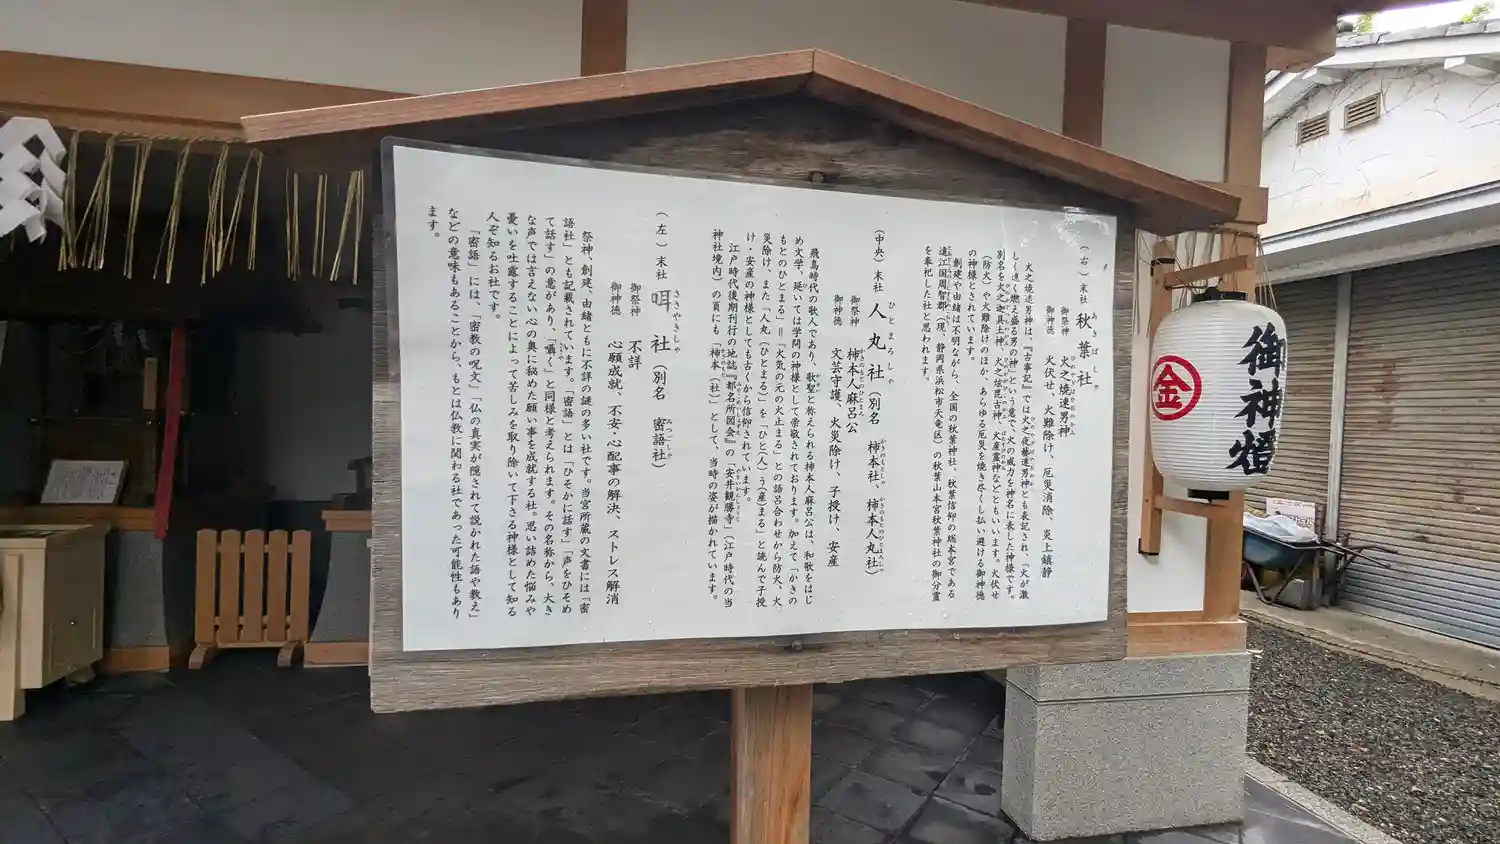 (右) 末社 秋葉社
あきばしゃ
御祭神 火之焼速男神
ひのやぎはやおのかみ
御神徳 火伏せ、火難除け、厄災消除、炎上鎮静
火之焼速男神は、『古事記』では火之夜藝速男神とも表記され、「火が激
しく速く燃え盛る男の神」という意で、火の威力を神名に表した神様です。
別名を火之迦具土神、火之炫毘古神、火産霊神などともいいます。火伏せ
(防火)や火難除けのほか、あらゆる厄災を焼き尽くし払い避ける御神徳
の神様とされています。
創建や由緒は不明ながら、全国の秋葉神社、秋葉信仰の総本宮である
遠江国周智郡(現、静岡県浜松市天竜区)の秋葉山本宮秋葉神社の御分霊
を奉祀した社と思われます。
(中央) 末社 人丸社(別名 柿本社、柿本人丸社)
ひとまろしゃ
御祭神 柿本人麻呂公
かきのもとのひとまろ
御神徳 文芸守護、火災除け、子授け、安産
飛鳥時代の歌人であり、歌聖と称えられる柿本人麻呂公は、和歌をはじ
め文学、延いては学問の神様として崇敬されております。加えて「かきの
もとのひとまる」＝「火気の元の火止まる」との語呂合わせから防火、火
災除け、また「人丸(ひとまる)」を「ひと(人)う(産)まる」と読んで子授
け・安産の神様としても古くから信仰されています。
江戸時代後期刊行の地誌『都名所図会』の「安井観勝寺」(江戸時代の当
神社境内)の頁にも「柿本(社)」として、当時の姿が描かれています。
(左) 末社 咡社(別名 密語社)
ささやきしゃ
みつごしゃ
御祭神 不詳
御神徳 心願成就、不安・心配事の解決、ストレス解消
祭神、創建、由緒ともに不詳の謎の多い社です。当宮所蔵の文書には「密
語社」とも記載されています。「密語」とは「ひそかに話す」「声をひそめ
て話す」の意があり、「囁く」と同様と考えられます。その名称から、大き
な声では言えない心の奥に秘めた願い事を成就する社。思い詰めた悩みや
憂いを吐露することによって苦しみを取り除いて下さる神様として知る
人ぞ知るお社です。
「密語」には、「密教の呪文」「仏の真実が隠されて説かれた語や教え」
などの意味もあることから、もとは仏教に関わる社であった可能性もあり
ます。
御神燈
金